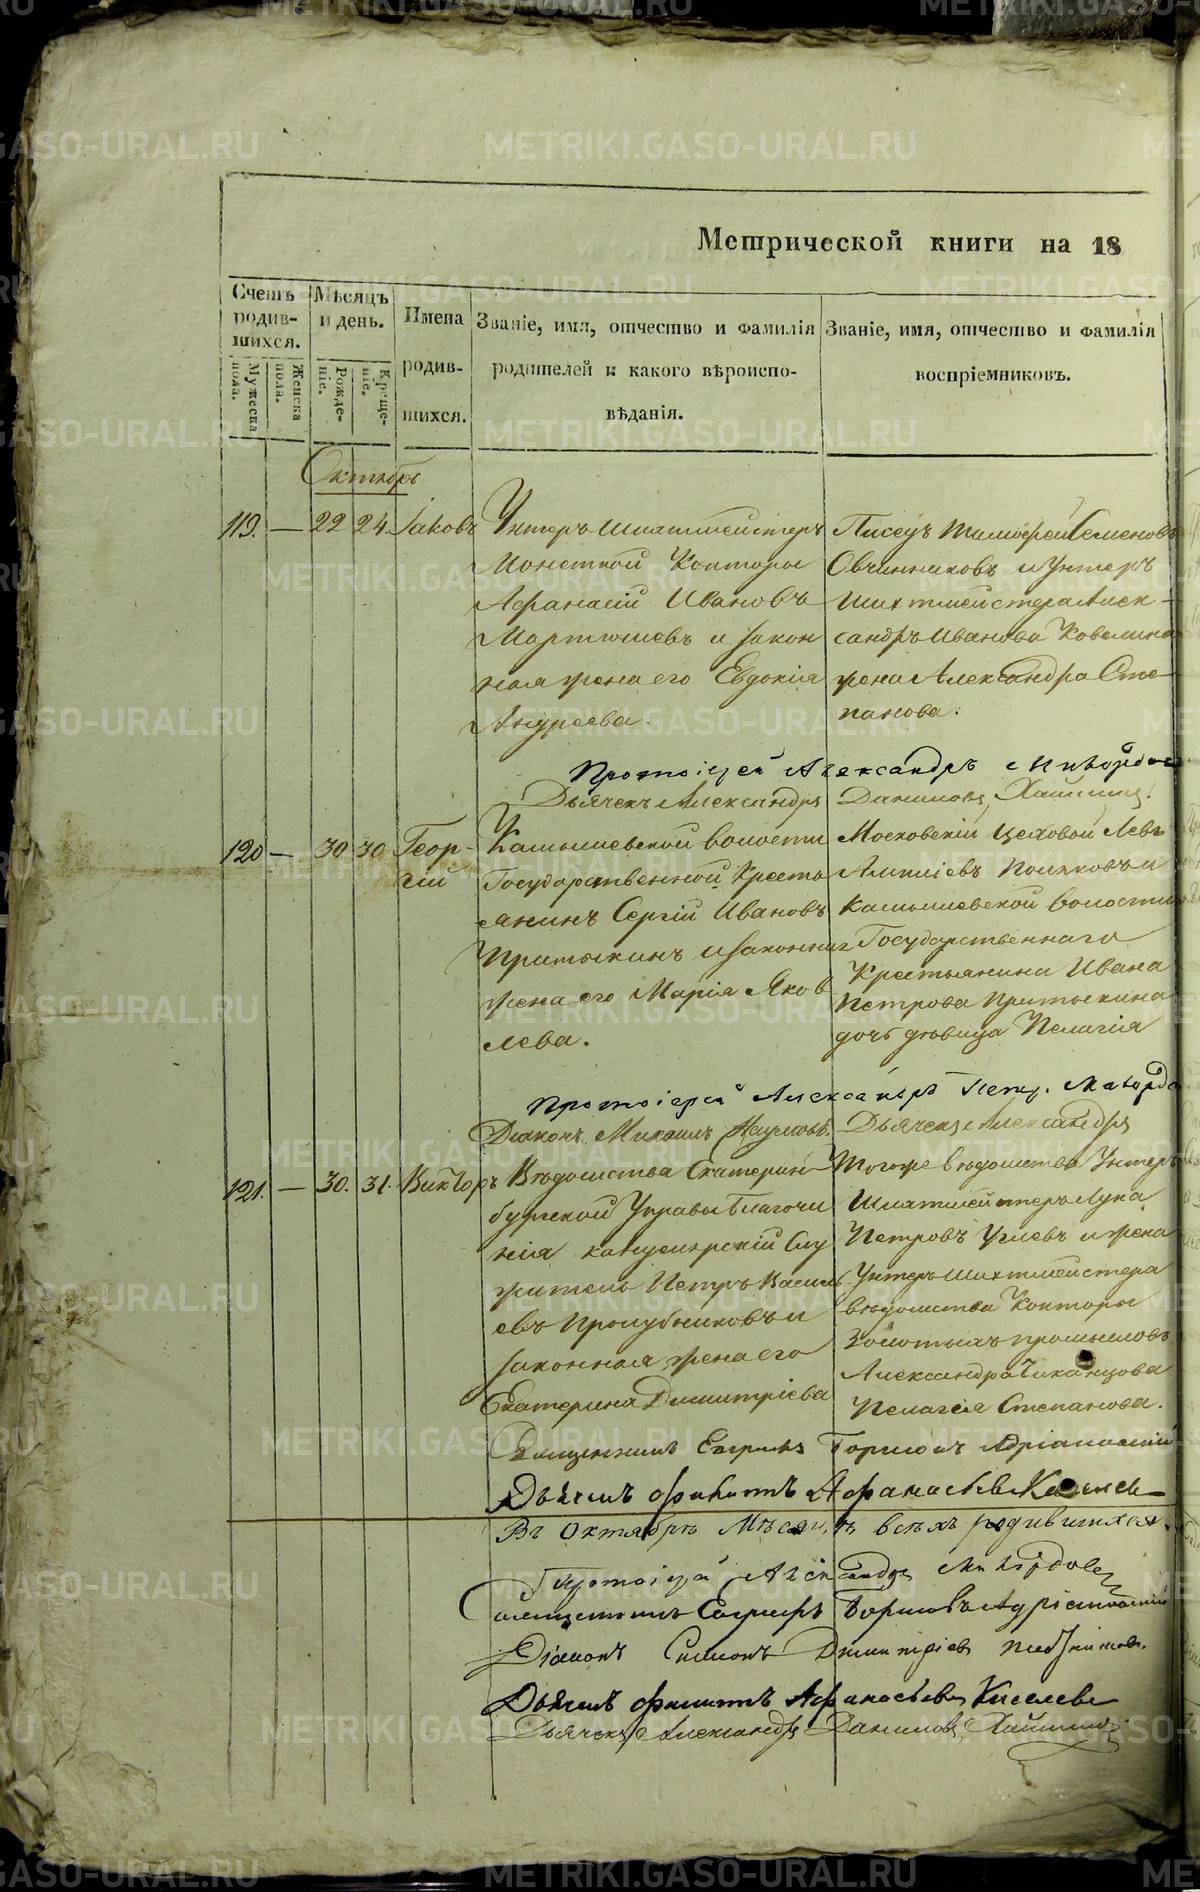 Метрической книги на 18
Счетъ родив-
шихся.
Мужеска пола.
Женска пола.
Мѣсяцъ
и день.
Рожде-
ніе.
Креще-
ніе.
Имена
родив-
шихся.
Званіе, имя, отчество и фамилія
родителей и какого вѣроиспо-
вѣданія.
Званіе, имя, отчество и фамилія
воспріемниковъ.
Октябрь
119. — 22 24. Іаковъ
Унтеръ шихтмейстеръ
Монетной Конторы
Афанасій Ивановъ
и закон
ная жена его Евдокія
Андреева.
Писецъ Тимофей Семеновъ
Овчинниковъ и Унтеръ
Шихтмейстера Алек-
сандръ Иванова
жена Александра Сте
панова.
Протоіерей Александръ
Дьячекъ Александръ Даниловъ
120 — 30 30 Геор-
гій
Камышевской волости
Государственной Кресть
янинъ Сергій Ивановъ
Притыкинъ и законная
жена его Марія Яков
лева.
Московскій цеховой Левъ
Поляковъ и
Камышевской волости
Государственнаго
Крестьянина Ивана
Петрова Притыкина
дочь дѣвица Пелагія
Протоіерей Александръ Петр.
Діаконъ Михаилъ Наумовъ. Дьячекъ Александръ
121. — 30. 31. Викторъ
Вѣдомства Екатерин-
бургской Управы Благочи
нія канцелярскій Слу
житель Петръ Василь
евъ Пролубниковъ и
законная жена его
Екатерина Димитріева
Тогоже вѣдомства Унтеръ
Шихтмейстеръ Лука
Петровъ Углевъ и жена
Унтеръ шихтмейстера
вѣдомства Конторы
Золотыхъ промысловъ
Александра Чиканцова
Пелагія Степанова.
Священникъ Евграфъ Борисовъ Адріановскій
Дьячекъ Филиппъ Афанасьевъ Киселев
Въ Октябрѣ Мѣсяцѣ всѣхъ родившихся.
Протоіерей Александръ
Священникъ Евграфъ Борисовъ Адріановскій
Діаконъ Симонъ Димитріевъ
Дьячекъ Филиппъ Афанасьевъ Киселевъ
Дьячекъ Александръ Даниловъ
METRIKI.GASO-URAL.RU